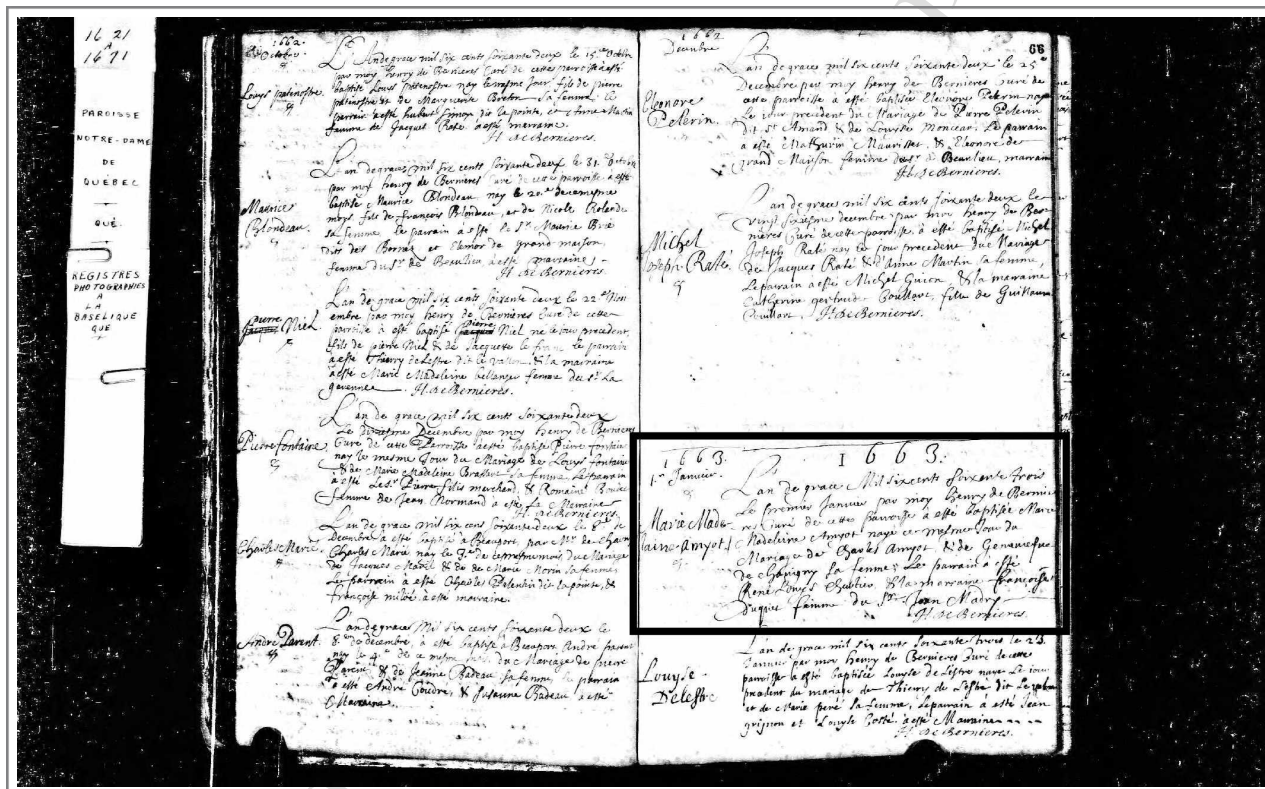 16 21
A
16 71
PAROISSE
NOTRE-DAME
DE
QUÉBEC
QUÉ.
REGISTRES
PHOTOGRAPHIES
A
LA
BASELIQUE
QUE
1662.
Octobre
Louys patenostre
L'An de grace mil six cents soixante deux le 15.e Octobre
par moy henry de Bernieres Curé de cette paroisse a esté
baptisé Louys patenostre nay le mesme jour, fils de pierre
patenostre et de Marguerite Breton sa femme. le
parrain a esté hubert Simon dit la pointe, et Anne Martin
femme de Jacques Raté a esté marraine.
H. de Bernieres.
Maurice
Blondeau.
L'an de grace mil six cents soixante deux le 31. Octobre
par moy henry de Bernieres Curé de cette paroisse a esté
baptisé Maurice Blondeau nay le 20.e du mesme
moys fils de françois Blondeau, et de Nicole Rolande
sa femme, le parain a esté le Sr. Maurice
et Elenor de grand maison
femme du Sr. de Beaulieu a esté marraine.
H. de Bernieres.
pierre
Niel.
L'an de grace mil six cents soixante deux le 22.e Nov
embre par moy henry de Bernieres Curé de cette
paroisse a esté baptisé pierre Niel né le jour precedent
fils de pierre Niel & de Jacquette le franc le parrain
a esté Thierry de Lestre dit le valon, & la marraine
a esté Marie Madeleine bellanger femme du Sr. La
H. de Bernieres.
Pierre fontaine
L'an de grace mil six cents soixante deux
Le dixiesme Decembre par moy henry de Bernieres
Curé de cette Paroisse a esté baptisé Pierre fontaine
nay le mesme Jour du Mariage de Louys fontaine
& de Marie Madeleine Brassart sa femme. Le parrain
a esté Le Sr. Pierre filis marchand, & Romaine
femme de Jean Normand a esté La Marraine
H. de Bernieres.
Charles Marié.
L'an de grace mil six cens soixante deux le 8.e de
Decembre a esté baptisé a Beauport par Mr. de
Charles Marié nay le 7.e de ce mesme mois du Mariage
de Jacques Marié & de Marie Morin sa femme
Le parrain a esté Charles Pelentin dit la pointe, &
françoise a esté marraine.
André Parent.
L'an de grace Mil six cents soixante deux le
8.e de decembre a esté baptisé a Beauport André parent
nay le 4.e de ce mesme du Mariage de pierre
Parent & de Jeanne Badeau sa femme, le parrain
a esté André & Susanne Badeau a esté
Marraine.
1662
Decembre
66
Eleonore
Pelerin.
L'an de grace mil six cents soixante deux le 25.e
Decembre par moy henry de Bernieres curé de
cette paroisse a esté baptisée Eleonore Pelerin nay
Le jour precedent du Mariage de Pierre Pelerin
dit St Amand & de Louyse Monceau, Le parrain
a esté Mathurin & Eleonore de
grand Maison femme du Sr. de Beaulieu, marraine
H. de Bernieres.
Michel
Joseph-Raté
L'an de grace mil six cents soixante deux le
vingt sixiesme decembre par moy henry de Ber-
nieres Curé de cette paroisse, a esté baptisé Michel
Joseph Raté nay le jour precedent du Mariage
de Jacques Raté & d'Anne Martin sa femme,
Le parain a esté Michel Guion, & la maraine
Catherine gertrude Couillart, fille de Guillaume
Couillart H. de Bernieres.
1663.
1.er Janvier.
1663.
Marie Made-
laine-Amyot
L'an de grace Mil six cents soixante trois
Le premier Janvier par moy henry de Bernie-
res Curé de cette parroisse a esté baptisée Marie
Madeleine Amyot nayé ce mesme Jour du
Mariage de Charles Amyot & de Genevieufve
de chavigny sa femme; Le parrain a esté
René Louys Chartier & la marraine françoise
Duquet femme du Sr. Jean Madry
H. de Bernieres.
Louyse
Delestre
L'an de grace mil six cents soixante trois le 23.
Janvier par moy henry de Bernieres Curé de cette
parroisse a esté baptisée Louyse de Lestre nayé Le jour
precedent du mariage de Thierry de Lestre dit Le valon
et de Marie peré sa femme, Le parain a esté Jean
grignon et Louyse a esté Marraine
H. de Bernieres.